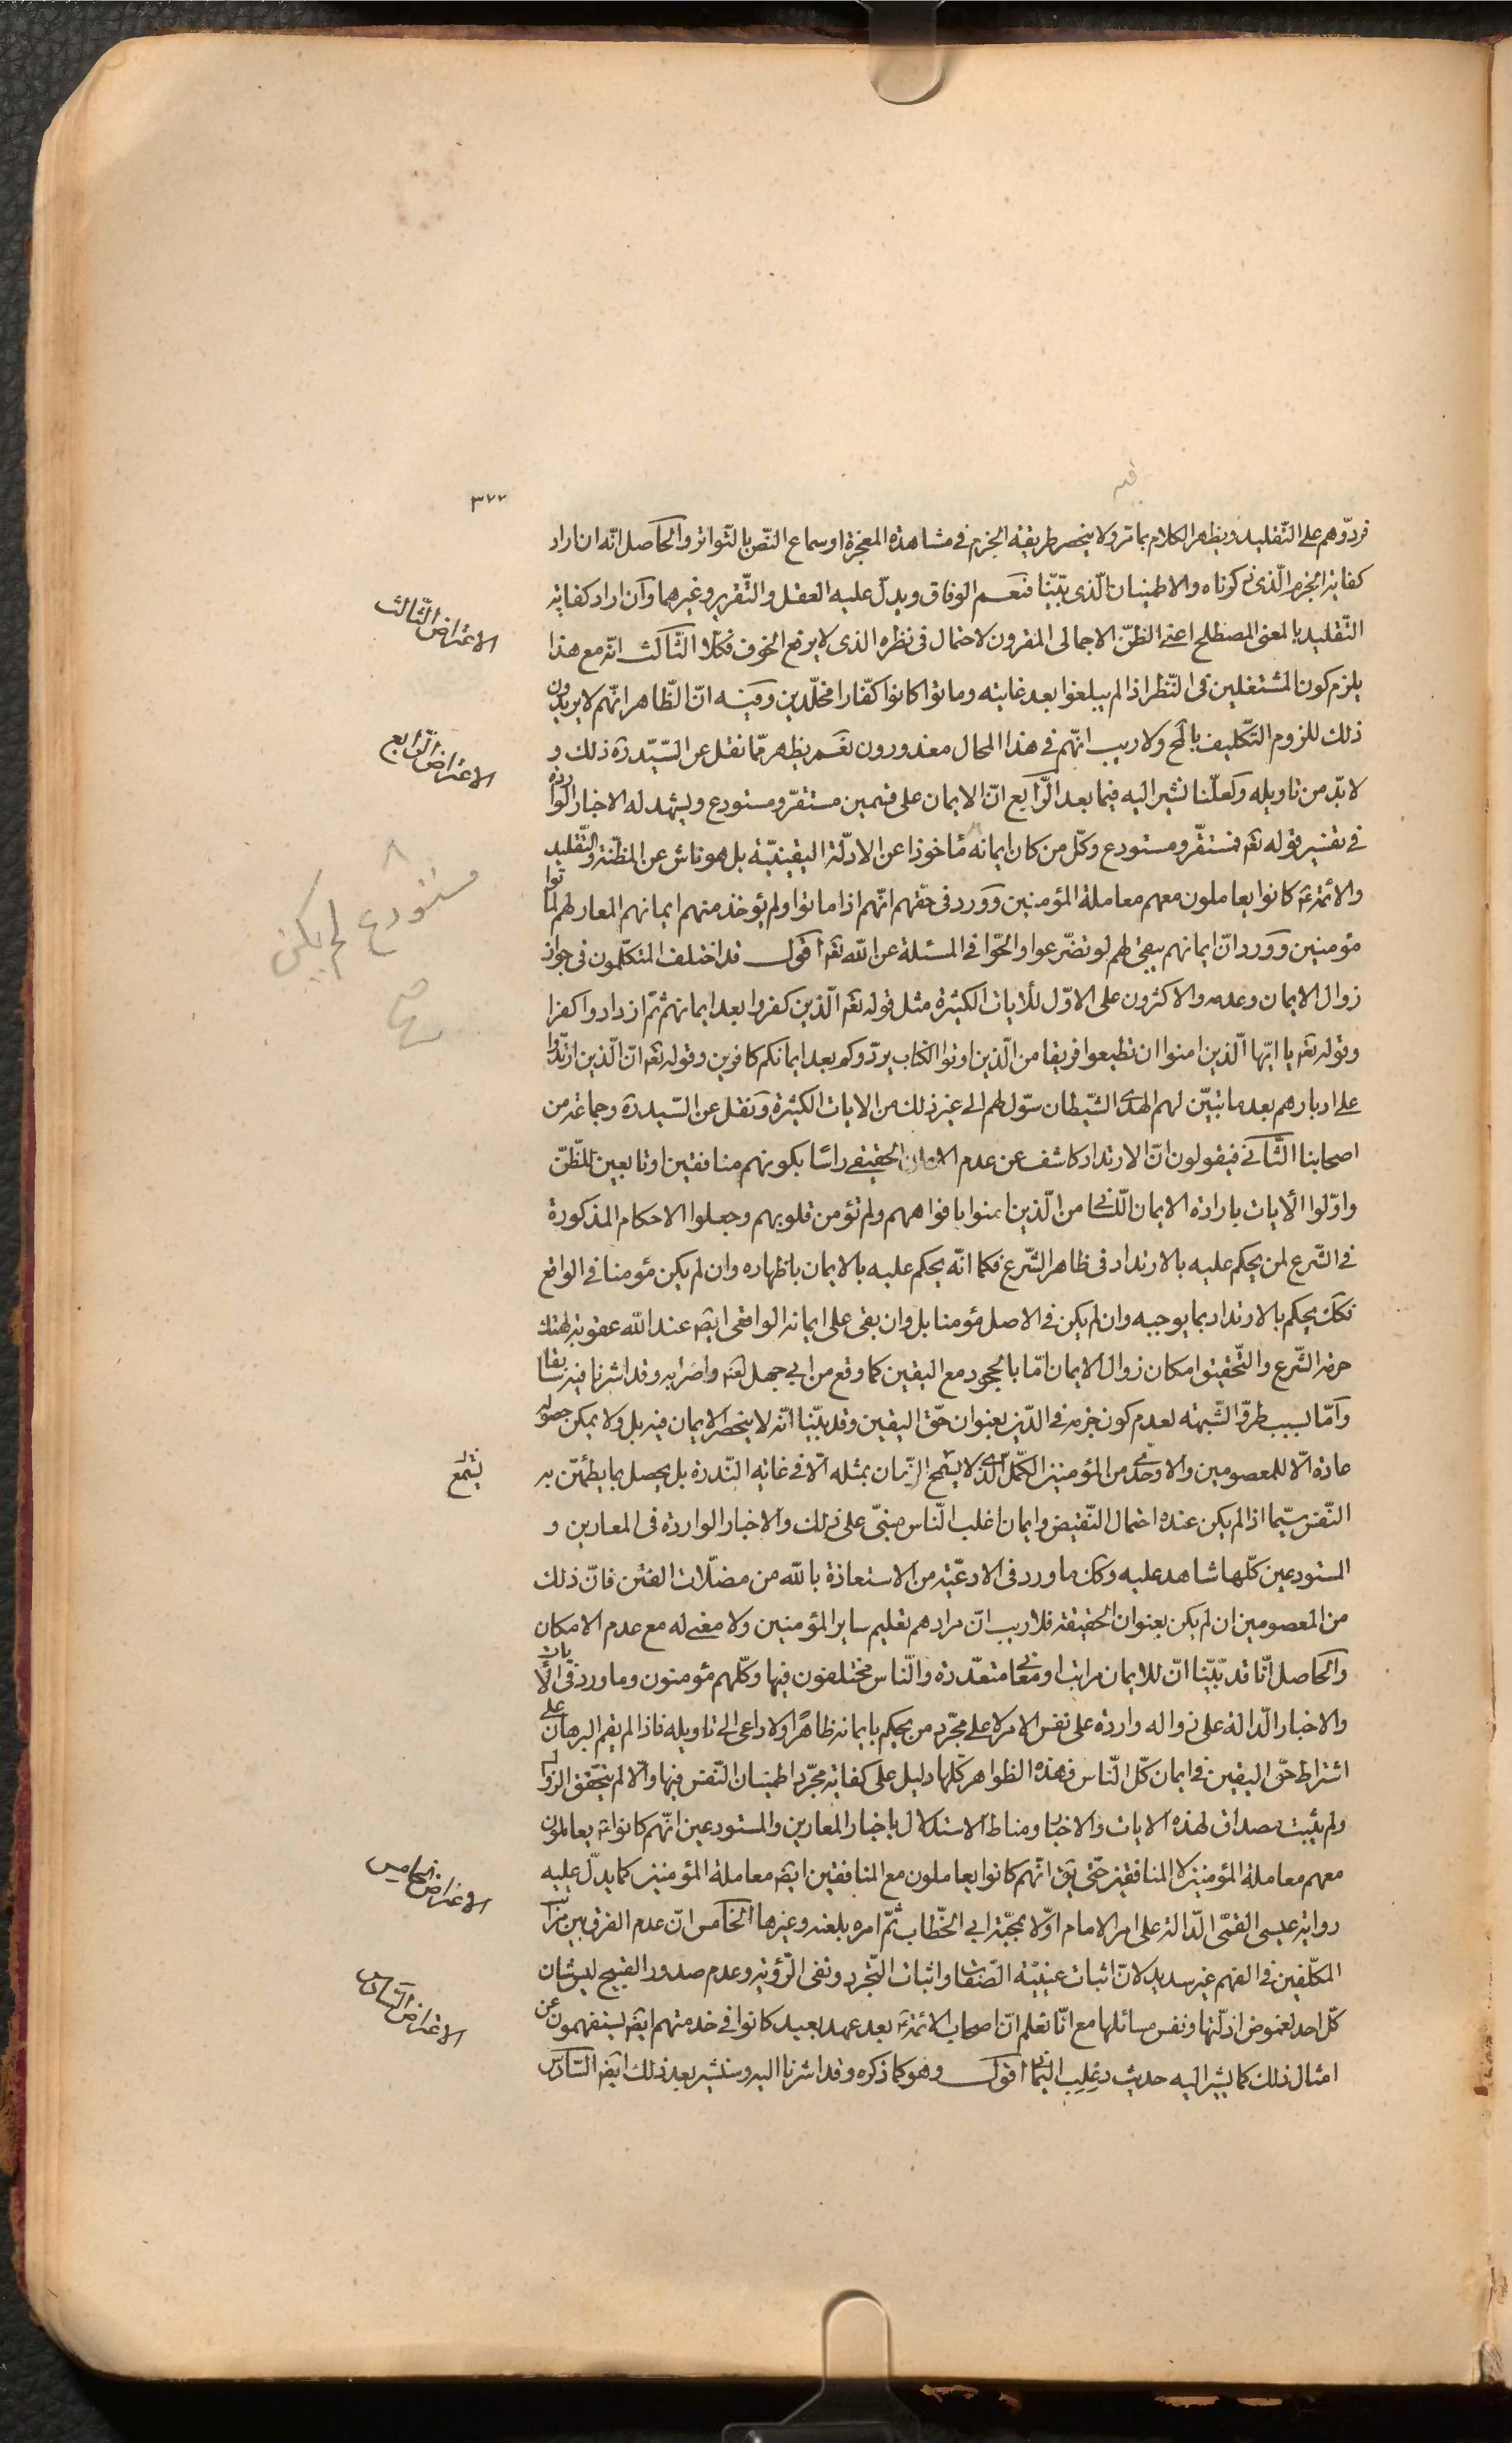 ٣٧٧
فردّوهم على التّقليد ويظهر الكلام بما مرّ ولا ينحصر طريقة الجزم فى مشاهدة المعجزة او سماع النّص بالتّواتر والحاصل انّه ان اراد
كفاية الجزم الّذى ذكرناه والاطمينان الّذى بيّنّا فنعم الوفاق ويدلّ عليه العقل والتّقرير وغيرهما وان اراد كفاية
التّقليد بالمعنى المصطلح اعنى الظنّ الاجمالى المقرون لاحتمال فى نظره الذى لا يرفع الخوف فكلّا الثّالث انّه مع هذا
يلزم كون المشتغلين فى النّظر اذا لم يبلغوا بعد غايته وماتوا كانوا كفّارا مخلّدين وفيه انّ الظّاهر انّهم لا يريدون
ذلك للزوم التكّليف بالمح ولا ريب انّهم فى هذا الحال معذورون نعم يظهر ممّا نقل عن السّيّد ره ذلك و
لا بدّ من تاويله ولعلّنا نشير اليه فيما بعد الرّابع انّ الايمان على قسمين مستقرّ ومستودع ويشهد له الاخبار الواردة
فى تفسير قوله تعه فمستقّر ومستودع وكلّ من كان ايمانه مأخوذا عن الادلّة اليقينيّة بل هو ناش عن المظنّة والتّقليد
والائمّة ع كانوا يعاملون معهم معاملة المؤمنين وورد فى حقّهم انّهم اذا ماتوا ولم يؤخذ منهم ايمانهم المعار لهم لماتوا
مؤمنين وورد انّ ايمانهم يبقى لهم لو تضّرعوا والحّوا فى المسئلة عن اللّه تعه اقول قد اختلف المتكلّمون فى جواز
زوال الايمان وعدمه والاكثرون على الاوّل للأيات الكثيرة مثل قوله تعه الّذين كفروا بعد ايمانهم ثمّ ازدادوا كفرا
وقوله تعه يا ايّها الّذين امنوا ان تطيعوا فريقا من الّذين اوتوا الكتاب يردّوكم بعد ايمانكم كافرين وقوله تعه انّ الّذين ارتدّوا
على ادبارهم بعد ما تبيّن لهم الهدى الشّيطان سوّل لهم الى غير ذلك من الايات الكثيرة ونقل عن السّيد ره وجماعة من
اصحابنا الثّانى فيقولون انّ الارتداد كاشف عن عدم الايمان الحقيقى رأسا بكونهم منافقين او تابعين للظّنّ
واوّلوا الأيات بارادة الايمان اللّسانى من الّذين امنوا بافواههم ولم تؤمن قلوبهم وجعلوا الاحكام المذكورة
فى الشّرع لمن يحكم عليه بالارتداد فى ظاهر الشّرع فكما انّه يحكم عليه بالايمان باظهاره وان لم يكن مؤمنا فى الواقع
فكك يحكم بالارتداد بما يوجبه وان لم يكن فى الاصل مؤمنا بل وان بقى على ايمانه الواقعى ايضه عند اللّه عقوبة لهتك
حرمة الشّرع والتّحقيق امكان زوال الايمان امّا بالجحود مع اليقين كما وقع من ابى جهل لعنه واضرابه وقد اشرنا فيه سابقا
وامّا بسبب طرّق الشّبهة لعدم كون جزمه فى الدّين بعنوان حقّ اليقين وقد بيّنّا انّه لا ينحصر الايمان فيه بل ولا يمكن حصوله
عادة الّا للمعصومين والاوحدىّ من المؤمنين الكمّل الّذى لا يسمح الزّمان بمثله الّا فى غاية النّدرة بل يحصل بما يطمئنّ به
النّفس سيّما اذا لم يكن عنده احتمال النّقيض وايمان اغلب النّاس مبنىّ على ذلك والاخبار الواردة فى المعارين و
المستودعين كلّها شاهد عليه وكك ما ورد فى الادعّية من الاستعاذة باللّه من مضلّات الفتن فانّ ذلك
من المعصومين ان لم يكن بعنوان الحقيقة فلا ريب انّ مرادهم تعليم ساير المؤمنين ولا معنى له مع عدم الامكان
والحاصل انّا قد بيّنّا انّ للايمان مراتبا ومعانى متعدّدة والنّاس مختلفون فيها وكلّهم مؤمنون وما ورد فى الأيات
والاخبار الدّالة على زواله واردة على نفس الامر لا على مجّرد من يحكم بايمانه ظاهرًا ولا داعى الى تاويله فاذا لم يقم البرهان على
اشتراط حقّ اليقين فى ايمان كلّ النّاس فهذه الظواهر كلّها دليل على كفاية مجرّد اطمينان النّفس فيها والّا لم يتحّقق الزوال
ولم يثبت مصداق لهذه الايات والاخبار ومناط الاستدلال باخبار المعارين والمستودعين انّهم كانوا ع يعاملون
معهم معاملة المؤمنين لا المنافقين حتّى يق انّهم كانوا يعاملون مع المنافقين ايضه معاملة المؤمنين كما يدلّ عليه
رواية عيسى القمّى الدّالة على امر الامام اوّلا بمحبّة ابى الخطّاب ثمّ امره بلعنه وغيرها الخامس انّ عدم الفرق بين مراتب
المكلّفين فى الفهم غير سديد لانّ اثبات عينيّة الصّفات واثبات التّجرد ونفى الرّؤية وعدم صدور القبيح ليس شان
كلّ احد لغموض ادلّتها ونفس مسائلها مع انّا نعلم انّ اصحاب الائمّة ع بعد عهد بعيد كانوا فى خدمتهم ايضه يستفهمون عن
امثال ذلك كما يشير اليه حديث دعلب اليمانى اقول وهو كما ذكره وقد اشرنا اليه وسنشير بعيد ذلك ايضه السّادس
الاعتراض الثّالث
الاعتراض الرّابع
مستودع لم يكن
يسمح
الاعتراض الخامس
الاعتراض السّادس